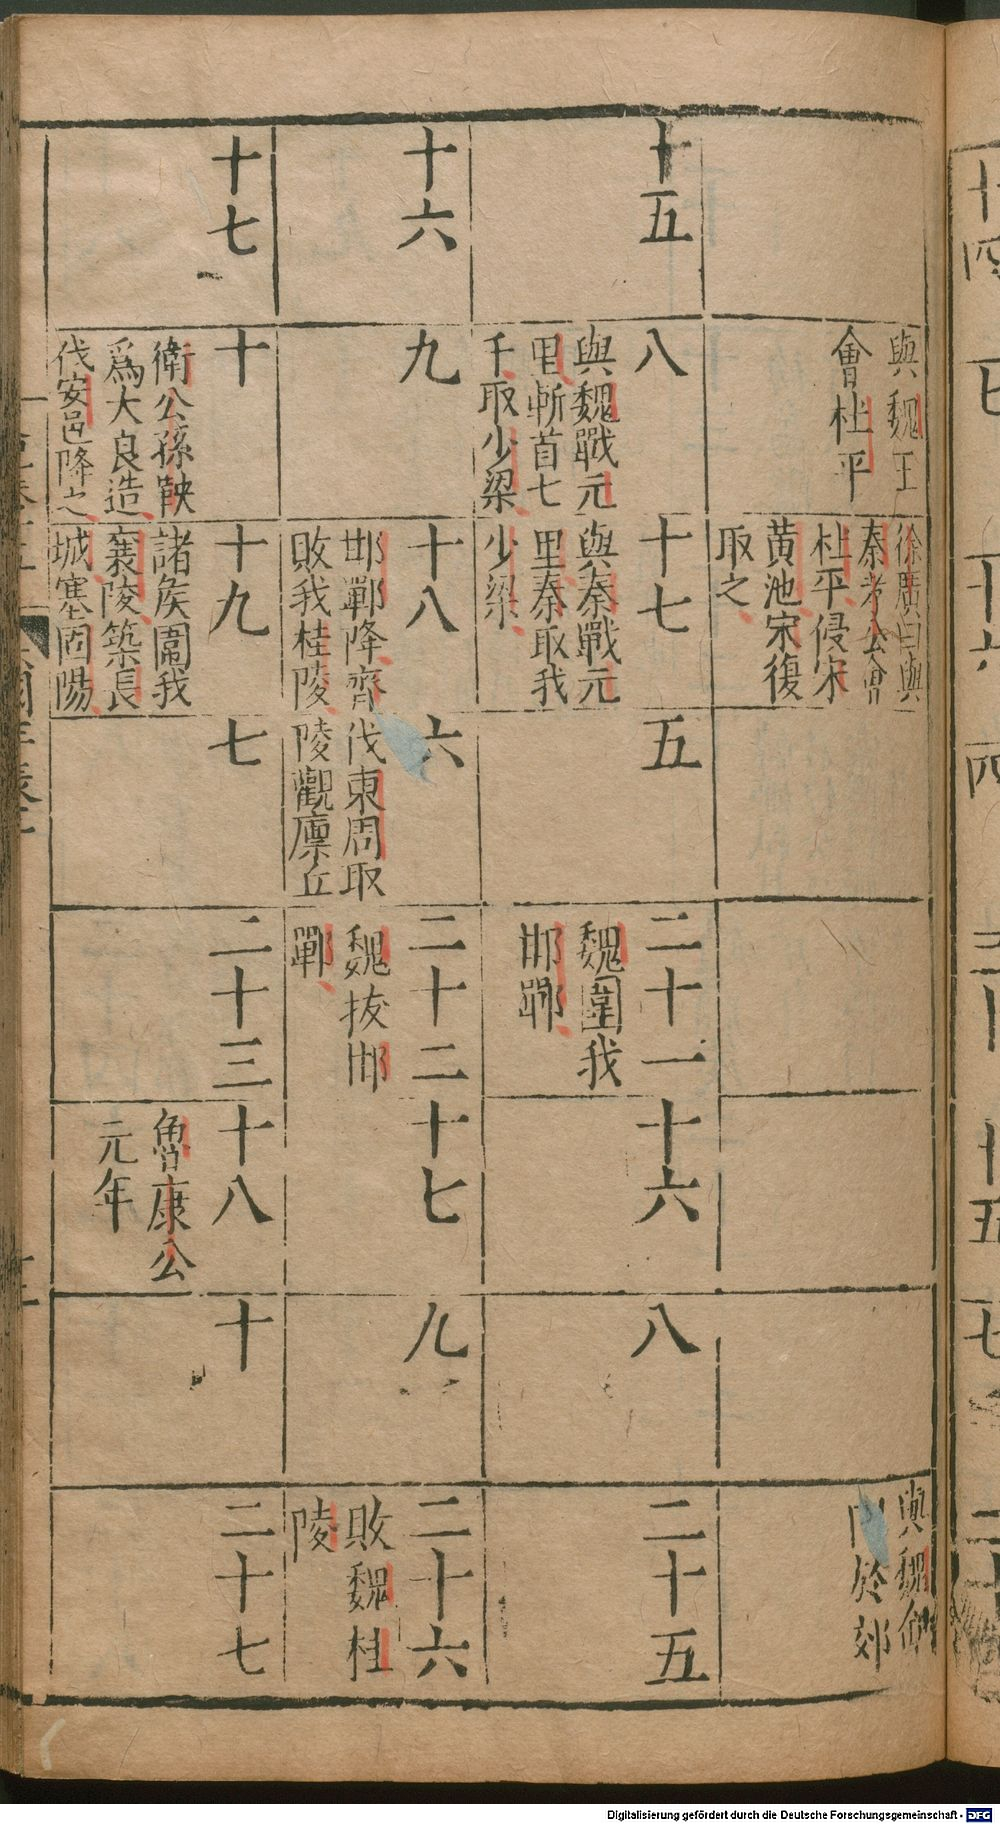 與魏王
會杜平
徐廣曰與
秦孝公會
杜平侵宋
黄池宋復
取之
與魏
於郊
十五
八
與魏戰元
里斬首七
千取少梁
十七
與秦戰元
里秦取我
少梁
五
二十一
魏圍我
邯鄲
十六
八
二十五
十六
九
十八
邯鄲降齊
敗我桂陵
六
伐東周取
陵觀廩丘
二十二
魏拔邯
鄲
十七
九
二十六
敗魏桂
陵
十七
十
衛公孫鞅
爲大良造
伐安邑降之
十九
諸矦圍我
襄陵築長
城塞固陽
七
二十三
十八
魯康公
元年
十
二十七
十四
四
十五
七
Digitalisierung gefördert durch die Deutsche Forschungsgemeinschaft - DFG